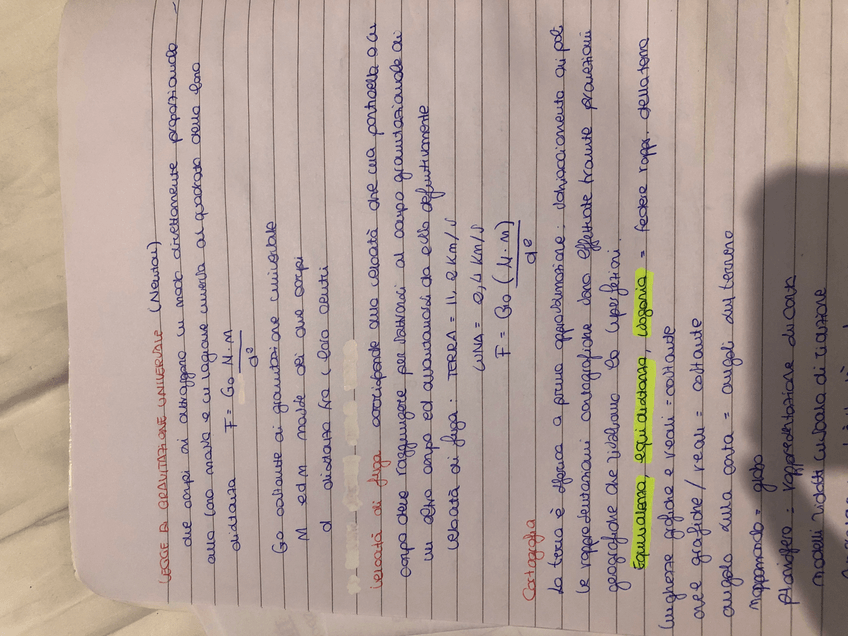 LEGGE DI GRAVITAZIONE UNIVERSALE (Newton)
due corpi si attraggono in modo direttamente proporzionale
alla loro massa e in ragione inversa al quadrato della loro
distanza F = Go N·M
d²
Go costante di gravitazione universale
M ed m masse dei due corpi
d distanza fra i loro centri
Velocità di fuga corrisponde alla velocità che una particella o un
corpo deve raggiungere per sottrarsi al campo gravitazionale di
un altro corpo ed allontanandosi da esso definitivamente
Velocità di fuga: TERRA = 11,2 Km/s
LUNA = 2,4 Km/s
F = Go (N·M)
d²
Cartografia
La terra è sferica a prima approssimazione: schiacciamento ai poli
Le rappresentazioni cartografiche sono effettuate tramite proiezioni
geografiche che risultano la superficie.
Equivalenza, equidistanza, isogonia = fedele rapp. della terra
lunghezze grafiche e reali = costante
aree grafiche/reali = costante
angolo sulla carta = angoli sul terreno
mappamondo = globo
Planisfero: rappresentazione su carta
modelli ridotti in base di riduzione